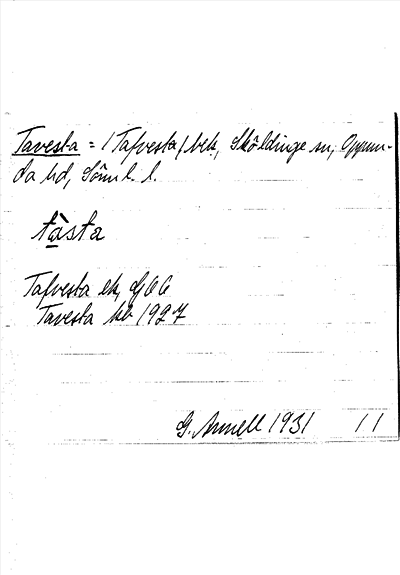 Tavesta = / Tafvesta / bek, Sköldinge sn, Oppun-
da hd, Söml. l.
tàsta
Tafvesta ek, GEG
Tavesta kb 1927
G. Annell 1931 11